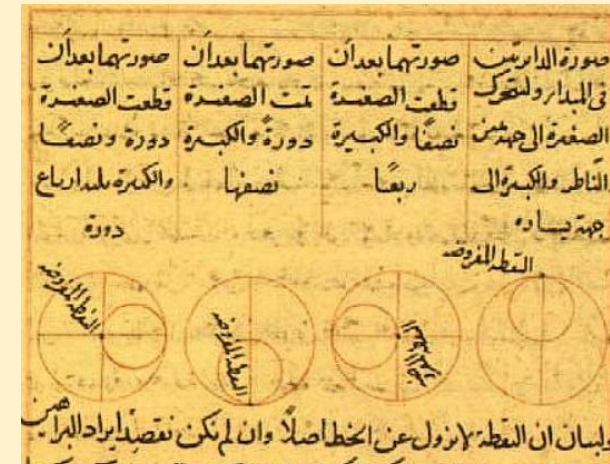 صورة الدايرتين
في المبدا ولتتحرك
الصغيرة الى جهة يمين
الناظر والكبيرة الى
جهة يساره
صورتهما بعد ان
قطعت الصغيرة
نصفًا والكبيرة
ربعًا
صورتهما بعد ان
تمت الصغيرة
دورةً والكبيرة
نصفها
صورتهما بعد ان
قطعت الصغيرة
دورة ونصفًا
والكبيرة ثلثة ارباع
دورة
النقطة المفروضه
النقطة المفروضه
النقطة المفروضه
ولبيان ان النقطة لا تزول عن الخط اصلًا وان لم نكن نقصد ايراد البراهين